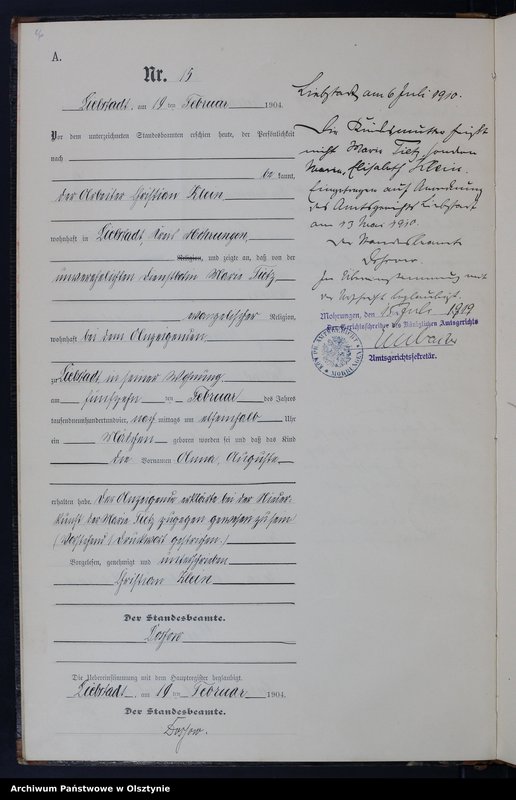 A.
Nr. 15
Liebstadt, am 19 ten Februar 1904.
Vor dem unterzeichneten Standesbeamten erschien heute, der Persönlichkeit
nach
be kannt,
der Arbeiter Christian Klein
wohnhaft in Liebstadt Kreis Mohrungen,
Religion, und zeigte an, daß von der
unverehelichten Dienstbotin Marie Tietz
evangelischer Religion,
wohnhaft bei dem Anzeigenden
zu Liebstadt in seiner Wohnung
am fünfzehn ten Februar des Jahres
tausendneunhundertundvier, nach mittags um elfeinhalb Uhr
ein Mädchen geboren worden sei und daß das Kind
die Vornamen Anna, Auguste
erhalten habe. Der Anzeigende erklärte bei der Nieder-
kunft der Marie Tietz zugegen gewesen zu sein
(Vorstehend 1 Druckwort gestrichen.)
Vorgelesen, genehmigt und unterschrieben
Christian Klein
Der Standesbeamte.
Die Uebereinstimmung mit dem Hauptregister beglaubigt.
Liebstadt, am 19 ten Februar 1904.
Der Standesbeamte.
Liebstadt, am 6 Juli 1910.
Die Kindsmutter heißt
nicht Marie Tietz sondern
Marie, Elisabeth Klein.
Eingetragen auf Anordnung
des Amtsgerichts Liebstadt
am 13 Mai 1910.
Der Standesbeamte
Zur Übereinstimmung mit
der Urschrift beglaubigt.
Mohrungen, den 15 Juli 1919
Der Gerichtsschreiber des Königlichen Amtsgerichts
Amtsgerichtssekretär.
KGL. PR. AMTSGERICHT MOHRUNGEN
Archiwum Państwowe w Olsztynie